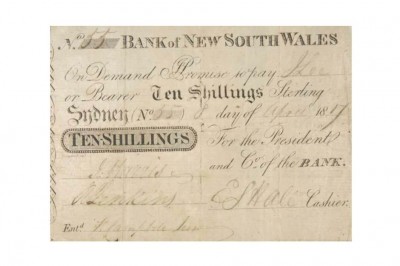 No. 55 BANK of NEW SOUTH WALES
On Demand I Promise to pay
or Bearer Ten Shillings Sterling
Sydney (No. 55) 8 day of April 1817
TEN SHILLINGS For the President
and Co. of the BANK.
Jenkins E S Hall Cashier.
Entd.